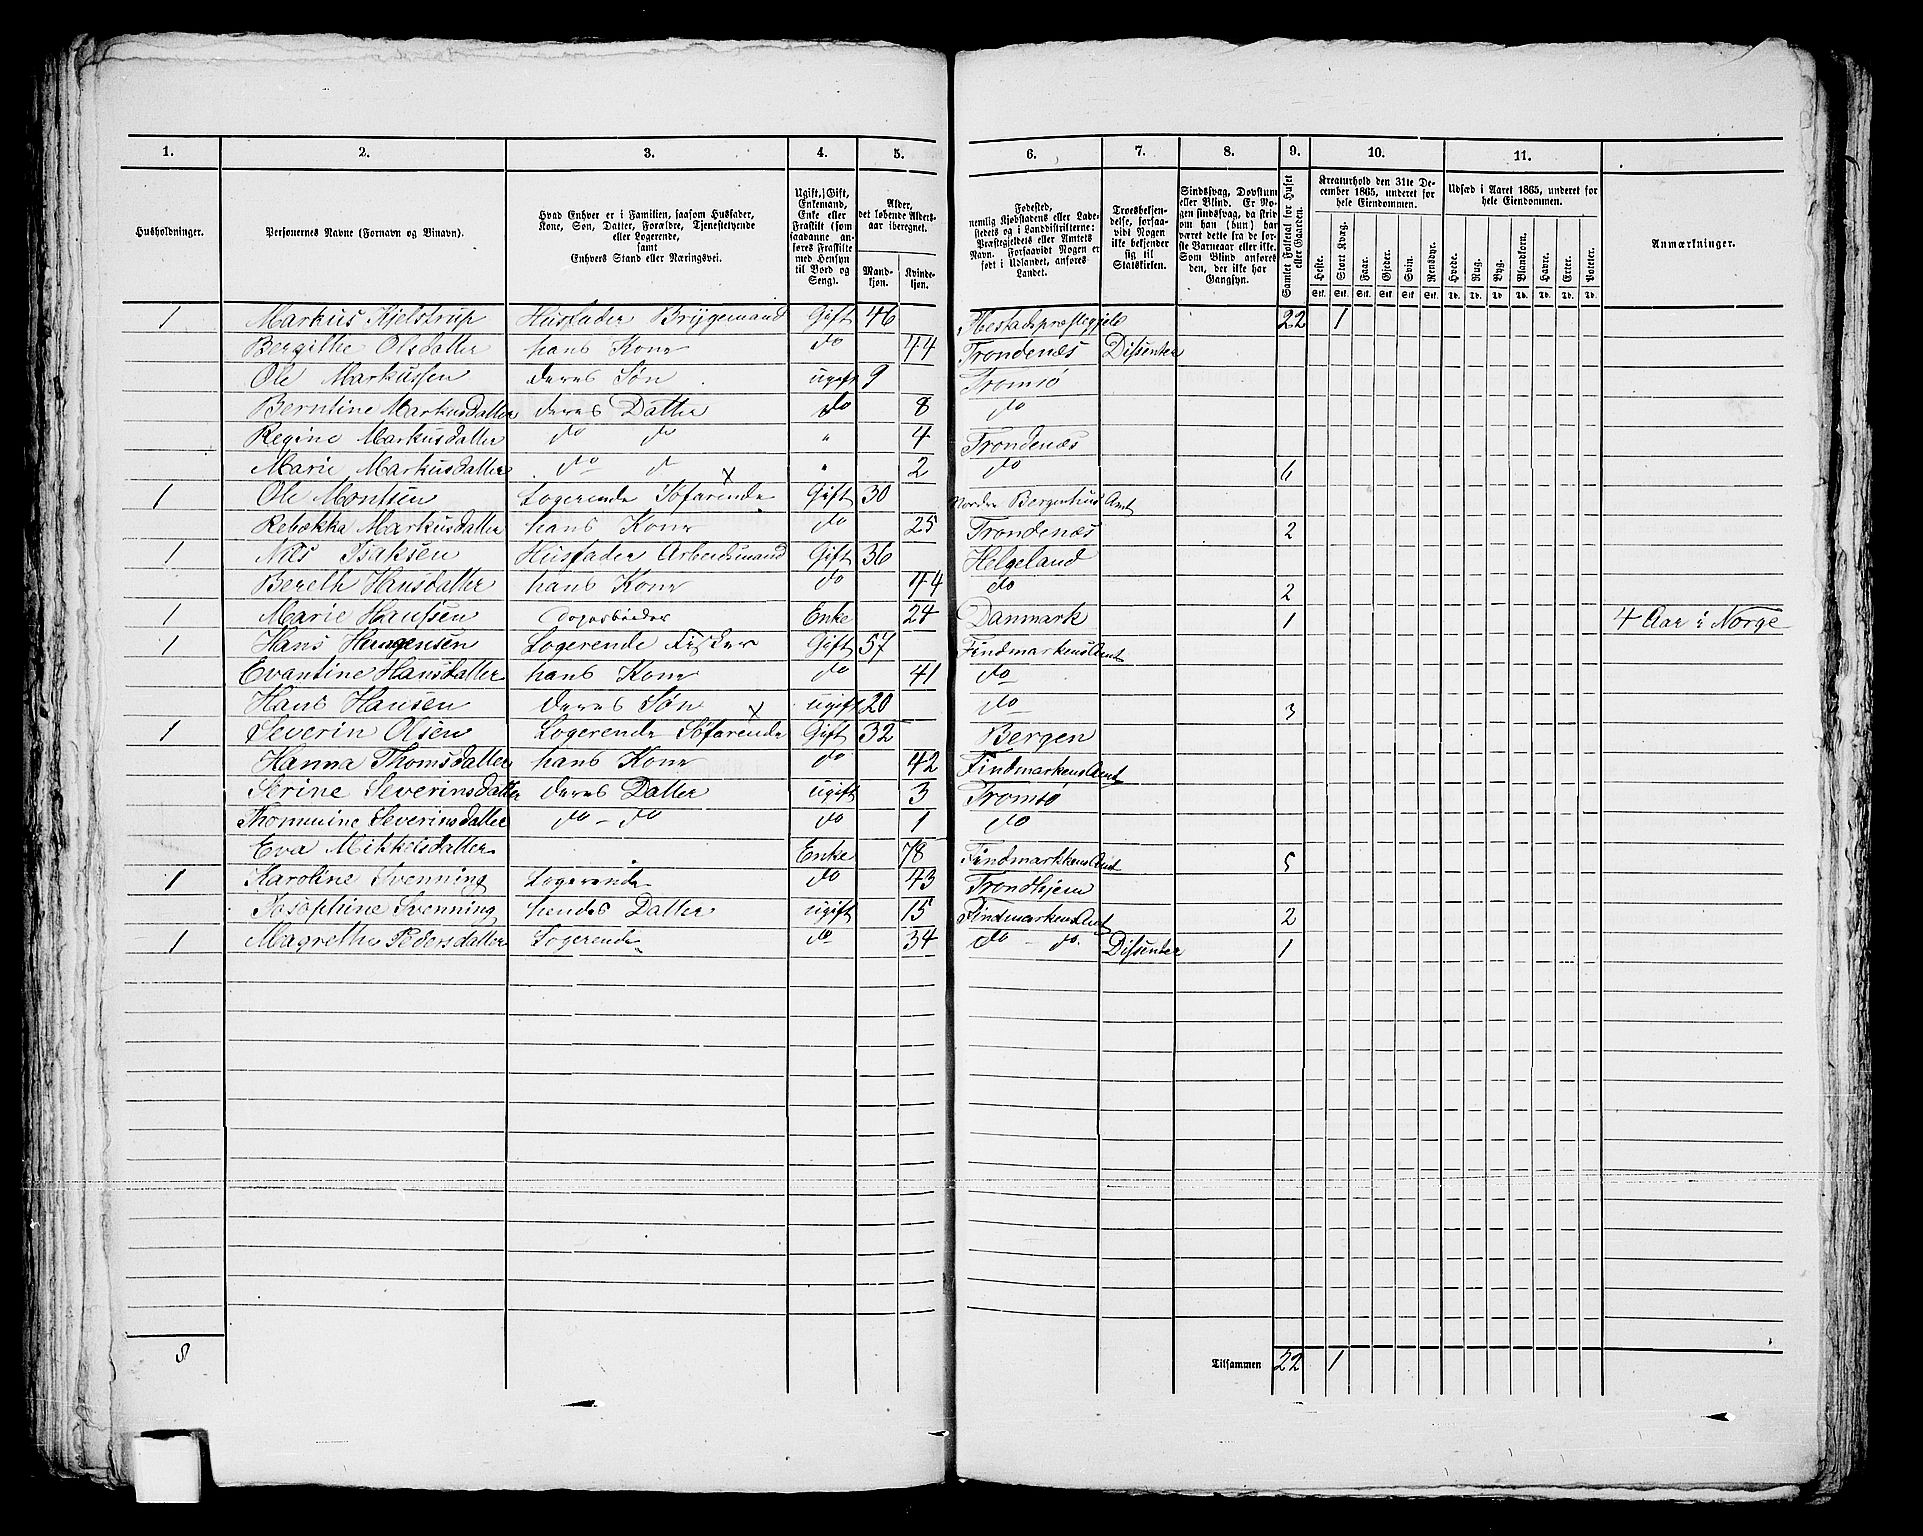 1. 2. 3. 4. 5. 6. 7. 8. 9. 10. 11.
Husholdninger. Personernes Navne (Fornavn og Binavn). Hvad Enhver er i Familien, saasom Husfader, Kone, Søn, Datter, Forældre, Tjenestetyende eller Logerende, samt Enhvers Stand eller Næringsvei. Ugift, Gift, Enkemand, Enke eller Fraskilt (som saadanne anføres Fraskilte med Hensyn til Bord og Seng). Alder, det løbende Aldersaar iberegnet. Mandkjøn. Kvindekjøn. Fødested, nemlig Kjøbstadens eller Ladestedets og i Landdistrikterne: Præstegjeldets eller Amtets Navn. Forsaavidt Nogen er født i Udlandet, anføres Landet. Troesbekjendelse, forsaavidt Nogen ikke bekjender sig til Statskirken. Sindssvag, Døvstum eller Blind. Er Nogen sindssvag, da skriv om han (hun) har været dette fra de første Barneaar eller ikke. Som Blind anføres den, der ikke har Gangsyn. Samlet Folketal for Huset eller Gaarden. Kreaturhold den 31te December 1865, underet for hele Eiendommen. Heste. Stort Kvæg. Faar. Gjeder. Svin. Rensdyr. Udsæd i Aaret 1865, underet for hele Eiendommen. Hvede. Rug. Byg. Blandkorn. Havre. Erter. Poteter. Anmærkninger.
Stk. Stk. Stk. Stk. Stk. Stk. Td. Td. Td. Td. Td. Td. Td.
1 Markus Kjelstrup Husfader Bryggemand Gift 46 Ibestadspræstegjeld 22 1
Bergithe Olsdatter hans Kone do 44 Trondenæs Dissenter
Ole Markussen deres Søn ugift 9 Tromsö
Berntine Markusdatter deres Datter do 8 do
Regine Markusdatter do do " 4 Trondenæs
Marie Markusdatter do d " 2 do 6
1 Ole Montsen Logerende Söfarende Gift 30 Nordre Bergenhus Amt
Rebækka Markusdatter hans Kone do 25 Trondenæs 2
1 Nils Isaksen Husfader Arbeidsmand Gift 36 Helgeland
Bereth Hansdatter hans Kone do 44 do 2
1 Marie Hanssen Enke 24 Danmark 1 4 Aar i Norge
1 Hans Logerende Fisker Gift 57 Findmarkens Amt
Evantine Hansdatter hans Kone do 41 do
Hans Hansen deres Søn ugift 20 do 3
1 Severin Olsen Logerende Söfarende Gift 32 Bergen
Hanna Thomsdatter hans Kone do 42 Findmarkens Amt
Serine Severinsdatter deres Datter ugift 3 Tromsö
Thommine Severinsdatter do - do do 1 do
Eva Mikkelsdatter Enke 78 Findmarkkens Amt 5
1 Karoline Svenning Logerende do 43 Trondhjem
Josephine Svenning hendes Datter ugift 15 Findmarkens Amt 2
1 Magrethe Pedersdatter Logerende do 34 do - do. Dissenter 1
8 Tilsammen 22 1